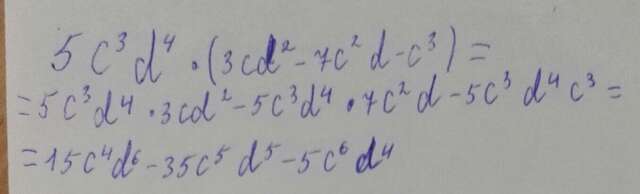 5c³d⁴·(3cd²-7c²d-c³)=
=5c³d⁴·3cd²-5c³d⁴·7c²d-5c³d⁴c³=
=15c⁴d⁶-35c⁵d⁵-5c⁶d⁴